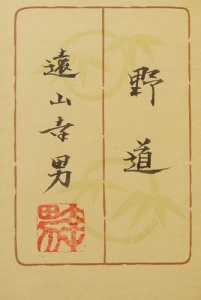 野道
遠山幸男